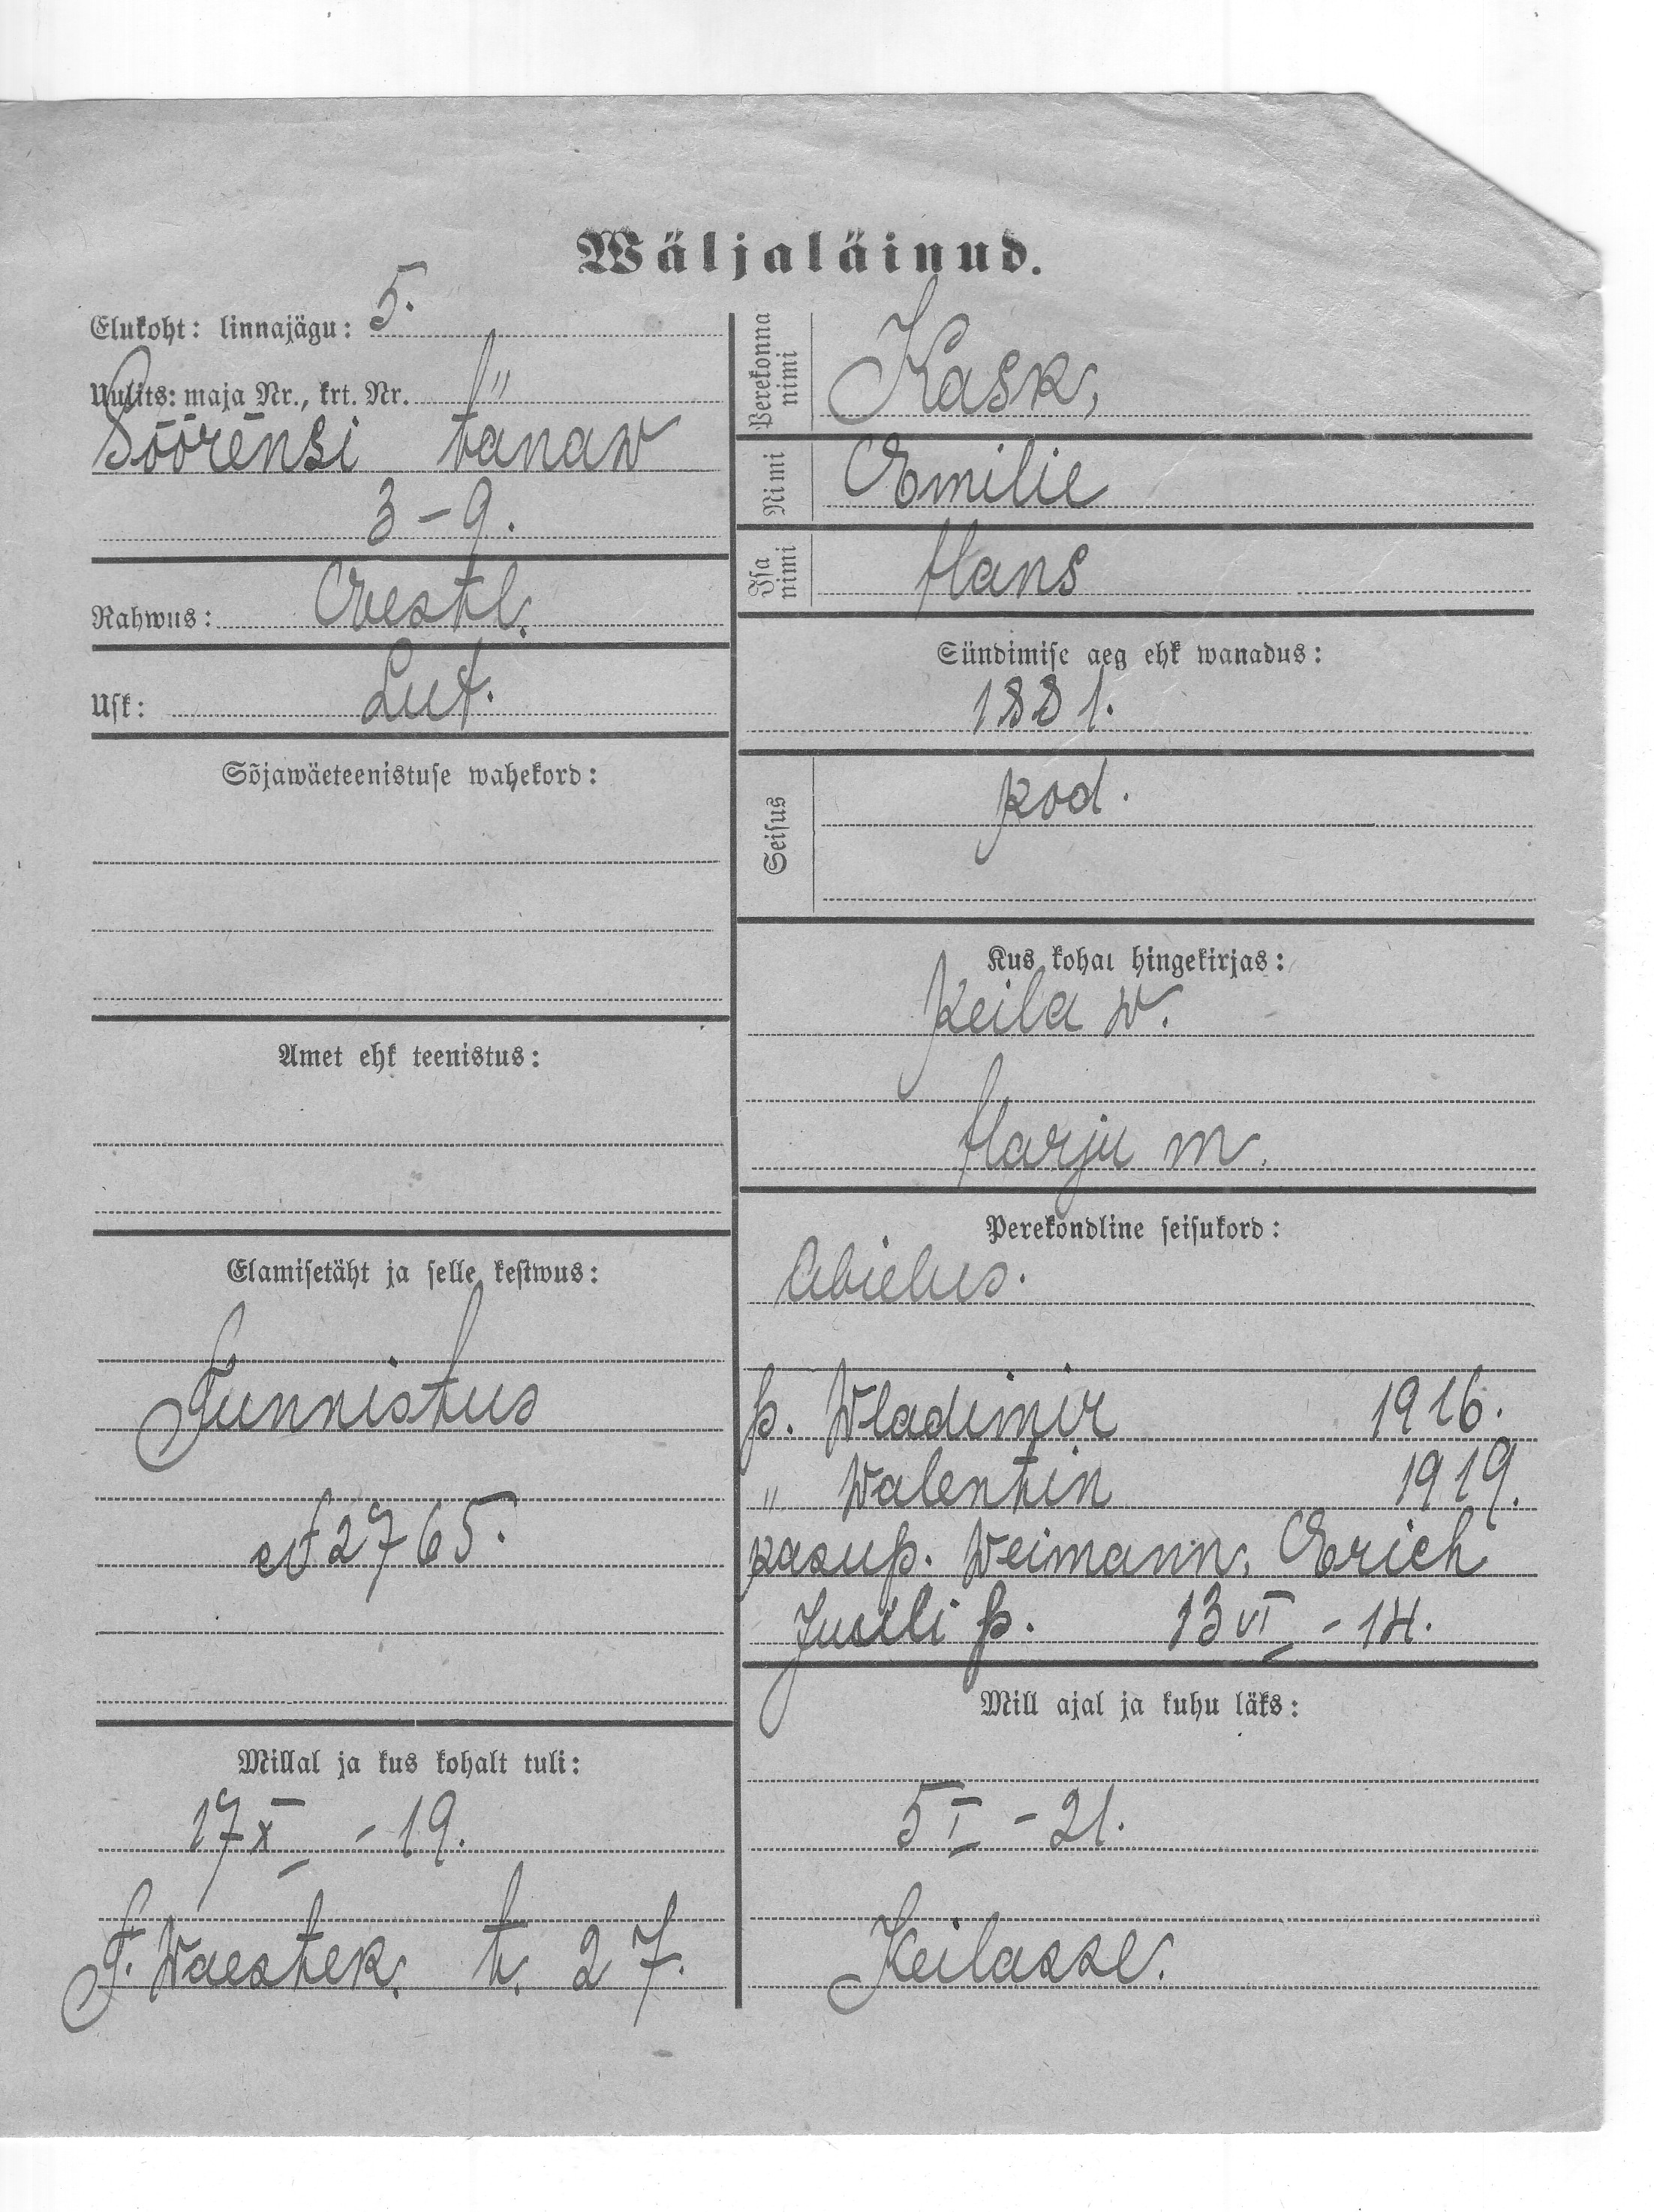 Wäljaläinud.
Elukoht: linnajägu: 5.
Uulits: maja Nr., krt. Nr. "
Söörensi tänaw
3-9.
Rahwus: Eestl.
Usk: Lut.
Sõjawäeteenistuse wahekord:
Amet ehk teenistus:
Elamisetäht ja selle kestwus:
Tunnistus
№ 2765.
Millal ja kus kohalt tuli:
17 X - 19.
T. 27.
Perekonna nimi Kask,
Nimi Emilie
Isa nimi Hans
Sündimise aeg ehk wanadus:
1881.
Seisus kod.
Kus kohal hingekirjas:
Keila w.
Harju m.
Perekondline seisukord:
Abielus.
p. Wladimir 1916.
" Walentin 1919.
kasup. Weimann, Erich
Juuli p. 13 VI - 14.
Mill ajal ja kuhu läks:
5 I - 21.
Keilasse.